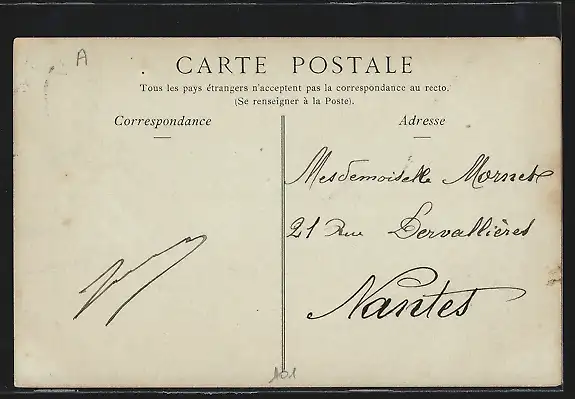 A
CARTE POSTALE
Tous les pays étrangers n'acceptent pas la correspondance au recto.
(Se renseigner à la Poste).
Correspondance
Adresse
Mesdemoiselle Mornet
21 Rue Dervallières
Nantes
101